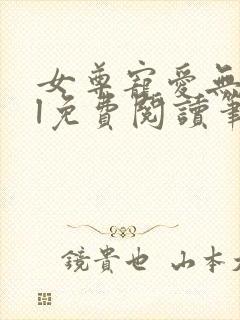 女尊寵愛無
l免費閱讀筆
鏡貴也 山本